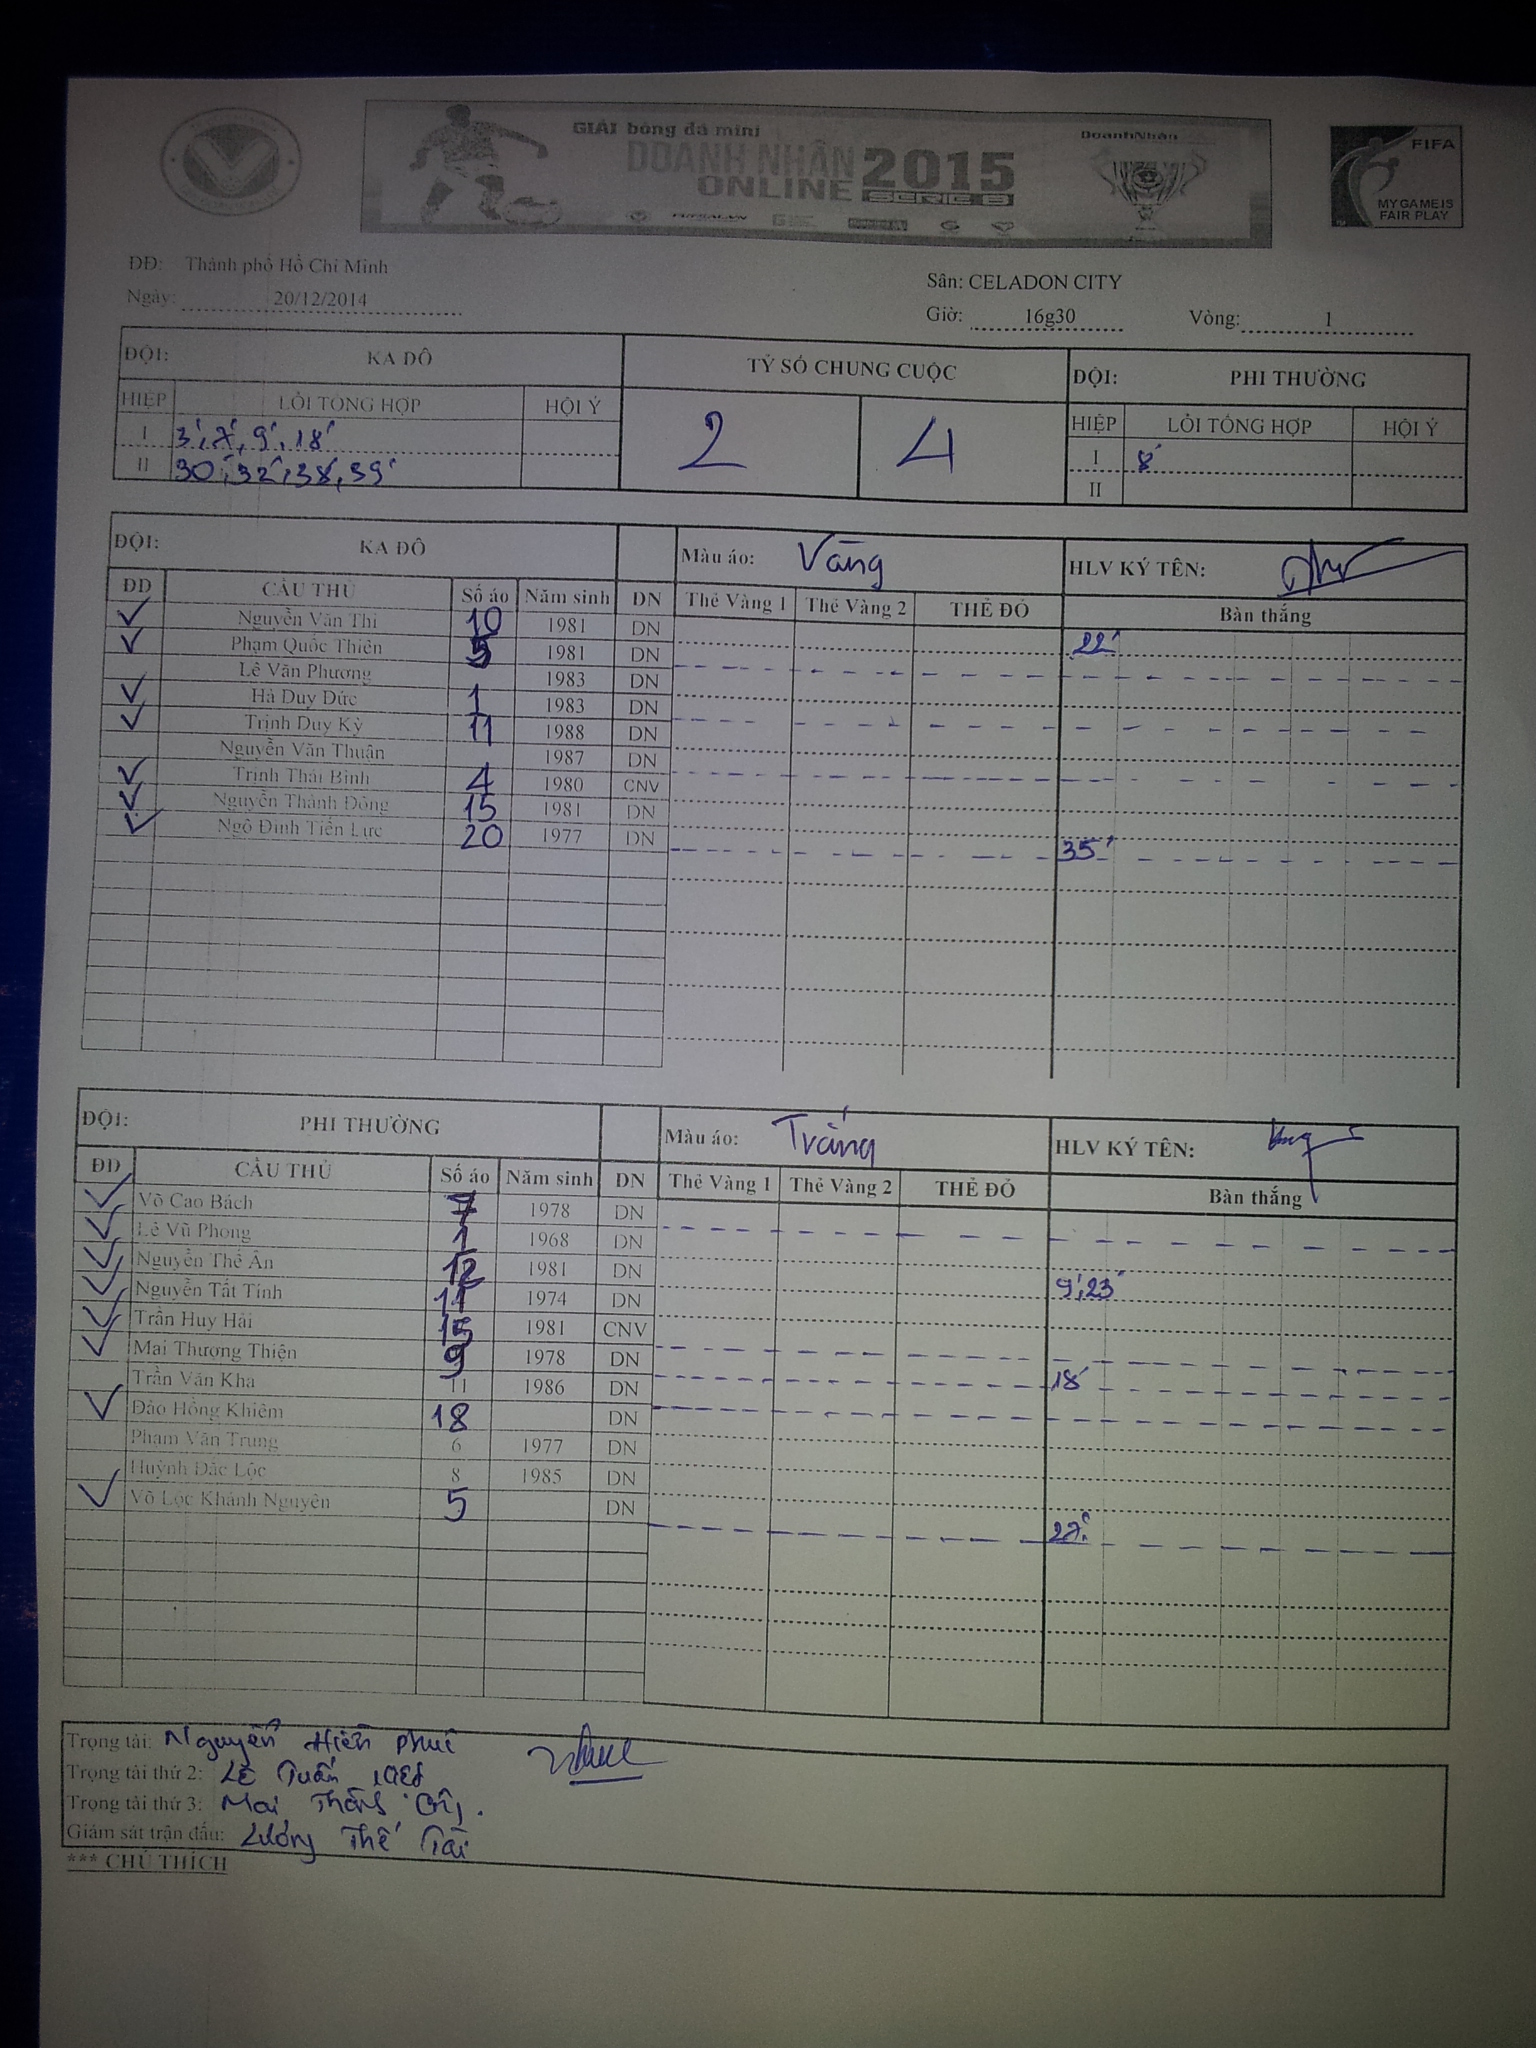 GIẢI bóng đá mini
DOANH NHÂN
ONLINE 2015
SERIE B
DoanhNhân
FIFA
MY GAME IS
FAIR PLAY
ĐĐ: Thành phố Hồ Chí Minh
Sân: CELADON CITY
Ngày: 20/12/2014
Giờ: 16g30 Vòng: 1
ĐỘI: KA ĐÔ TỶ SỐ CHUNG CUỘC ĐỘI: PHI THƯỜNG
HIỆP LỖI TỔNG HỢP HỘI Ý 2 4 HIỆP LỖI TỔNG HỢP HỘI Ý
I 3', 7', 9', 18' I 8'
II 30', 32', 38', 39' II
ĐỘI: KA ĐÔ Màu áo: Vàng HLV KÝ TÊN:
ĐD CẦU THỦ Số áo Năm sinh DN Thẻ Vàng 1 Thẻ Vàng 2 THẺ ĐỎ Bàn thắng
✓ Nguyễn Văn Thi 10 1981 DN 22'
✓ Phạm Quốc Thiên 5 1981 DN
Lê Văn Phương 1983 DN
✓ Hà Duy Đức 1 1983 DN
✓ Trịnh Duy Kỳ 11 1988 DN
Nguyễn Văn Thuận 1987 DN
✓ Trịnh Thái Bình 4 1980 CNV
✓ Nguyễn Thành Đông 15 1981 DN
✓ Ngô Đình Tiến Lực 20 1977 DN 35'
ĐỘI: PHI THƯỜNG Màu áo: Trắng HLV KÝ TÊN:
ĐD CẦU THỦ Số áo Năm sinh DN Thẻ Vàng 1 Thẻ Vàng 2 THẺ ĐỎ Bàn thắng
✓ Võ Cao Bách 7 1978 DN
✓ Lê Vũ Phong 1 1968 DN
✓ Nguyễn Thế Ân 12 1981 DN 9', 23'
✓ Nguyễn Tất Tính 11 1974 DN
✓ Trần Huy Hải 15 1981 CNV
✓ Mai Thượng Thiện 9 1978 DN 18'
Trần Văn Kha 11 1986 DN
✓ Đào Hồng Khiêm 18 DN
Phạm Văn Trung 6 1977 DN
Huỳnh Đắc Lộc 8 1985 DN
✓ Võ Lộc Khánh Nguyên 5 DN 27'
Trọng tài: Nguyễn Hiền Phúc
Trọng tài thứ 2: Lê Tuấn
Trọng tài thứ 3: Mai
Giám sát trận đấu: Lương Thế Tài
*** CHÚ THÍCH